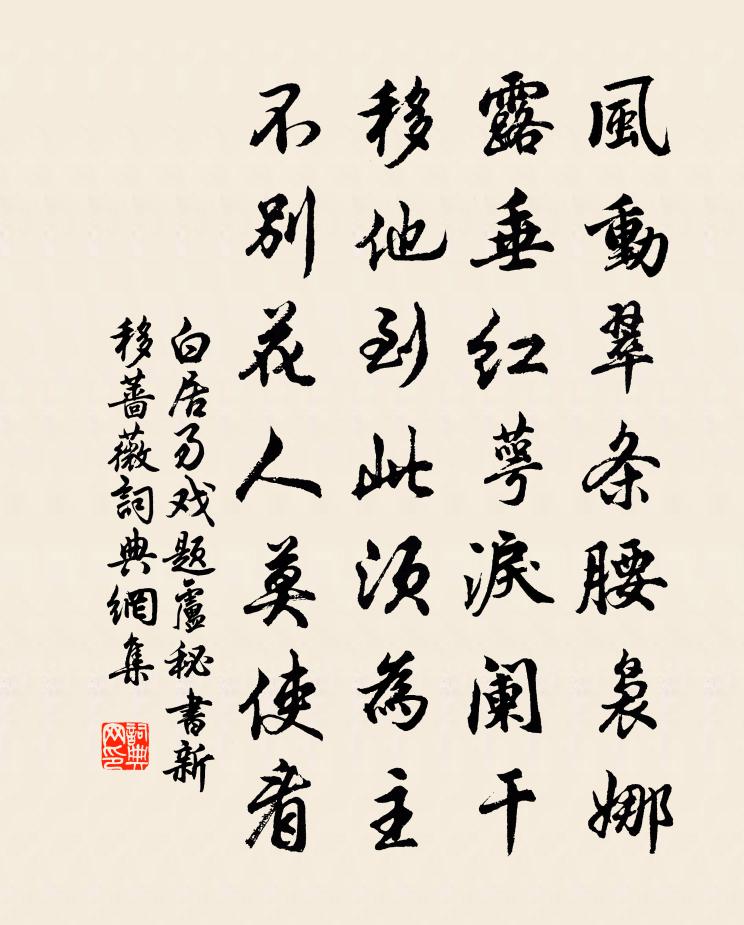 風動翠条腰裊娜
露垂紅萼淚阑干
移他到此须為主
不別花人莫使看
白居易戏题盧秘書新
移薔薇詞典網集
詞典
网印